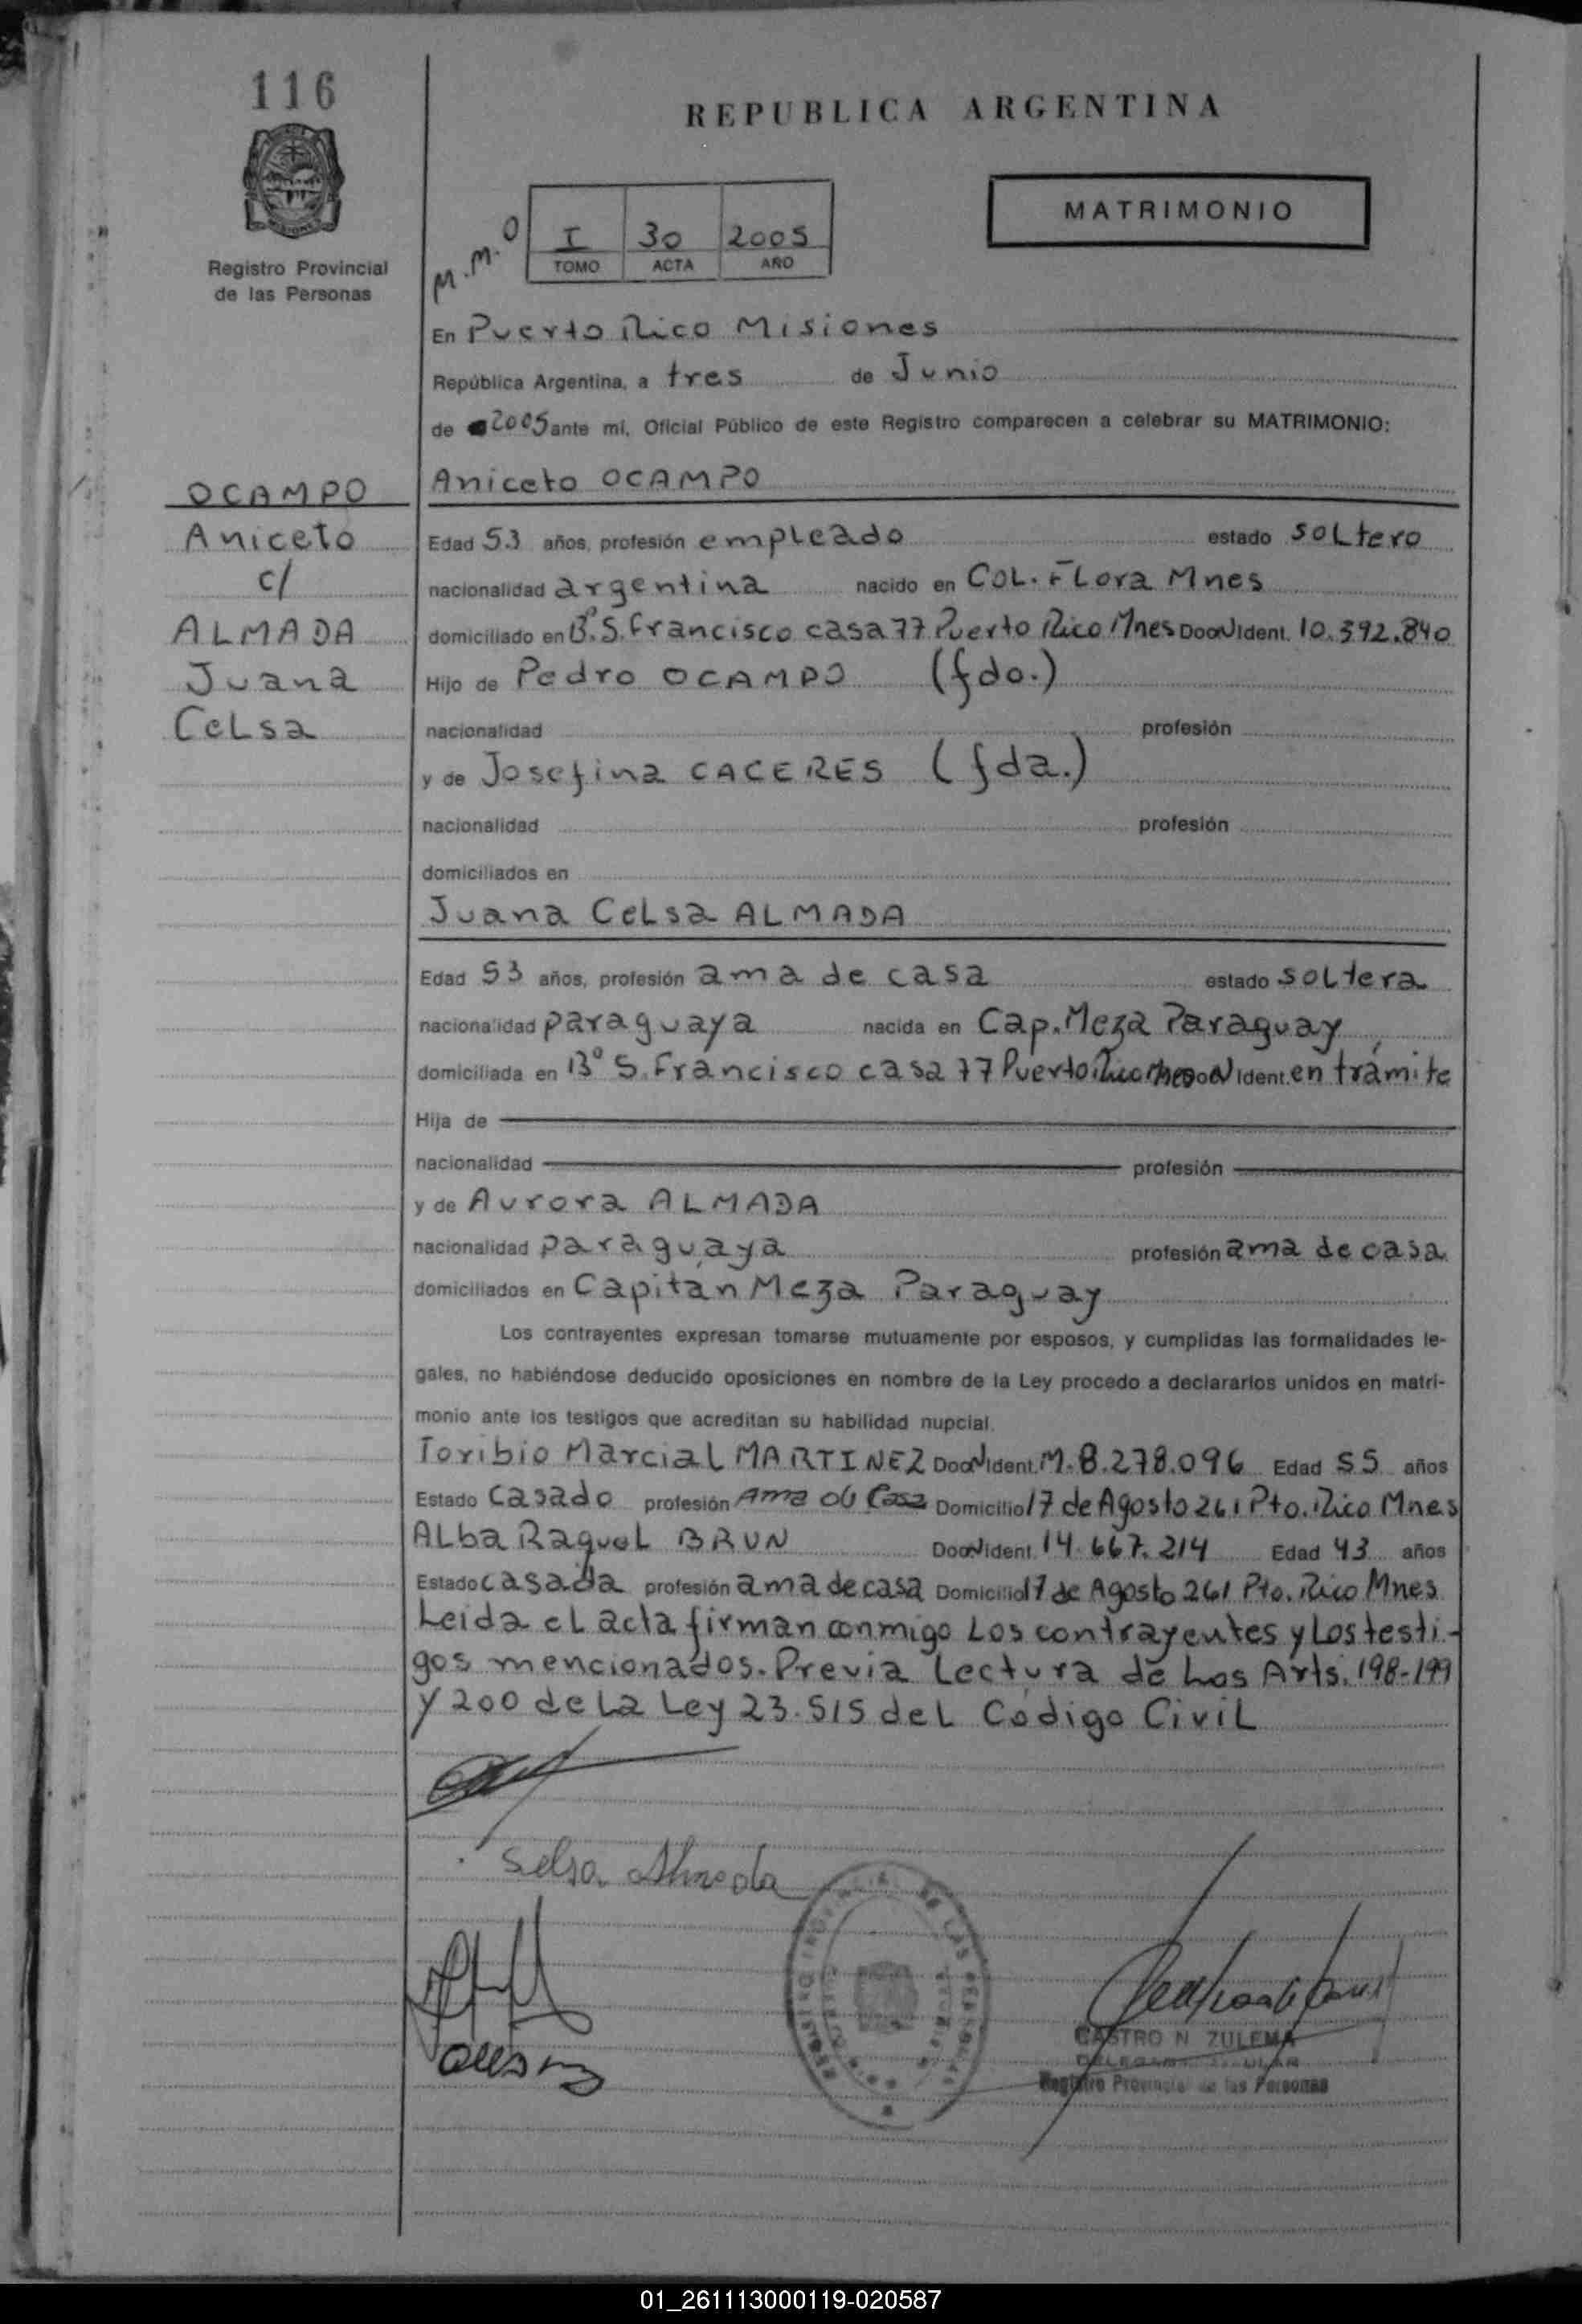 116
REPUBLICA ARGENTINA
MATRIMONIO
M.M.O
I 30 2005
TOMO ACTA AÑO
Registro Provincial
de las Personas
En Puerto Rico Misiones
República Argentina, a tres de Junio
de 2005 ante mí, Oficial Público de este Registro comparecen a celebrar su MATRIMONIO:
OCAMPO
Aniceto
c/
ALMADA
Juana
Celsa
Aniceto OCAMPO
Edad 53 años, profesión empleado estado soltero
nacionalidad argentina nacido en Col. Flora Mnes
domiciliado en B° S. Francisco casa 77 Puerto Rico Mnes Ident. 10.392.840
Hijo de Pedro OCAMPO (fdo.)
nacionalidad profesión
y de Josefina CACERES (fda.)
nacionalidad profesión
domiciliados en
Juana Celsa ALMADA
Edad 53 años, profesión ama de casa estado soltera
nacionalidad paraguaya nacida en Cap. Meza Paraguay
domiciliada en B° S. Francisco casa 77 Puerto Rico Mnes Ident. en trámite
Hija de
nacionalidad profesión
y de Aurora ALMADA
nacionalidad paraguaya profesión ama de casa
domiciliados en Capitán Meza Paraguay
Los contrayentes expresan tomarse mutuamente por esposos, y cumplidas las formalidades le-
gales, no habiéndose deducido oposiciones en nombre de la Ley procedo a declararlos unidos en matri-
monio ante los testigos que acreditan su habilidad nupcial.
Toribio Marcial MARTINEZ Ident. M. 8.278.096 Edad 55 años
Estado casado profesión Ama de Casa Domicilio 17 de Agosto 261 Pto. Rico Mnes
Alba Raquel BRUN Ident. 14.667.214 Edad 43 años
Estado casada profesión ama de casa Domicilio 17 de Agosto 261 Pto. Rico Mnes
Leida el acta firman conmigo los contrayentes y los testi-
gos mencionados. Previa lectura de los Arts. 198-199
y 200 de la Ley 23.515 del Código Civil
Selsa Almada
CASTRO N. ZULEMA
Registro Provincial de las Personas
01_261113000119-020587